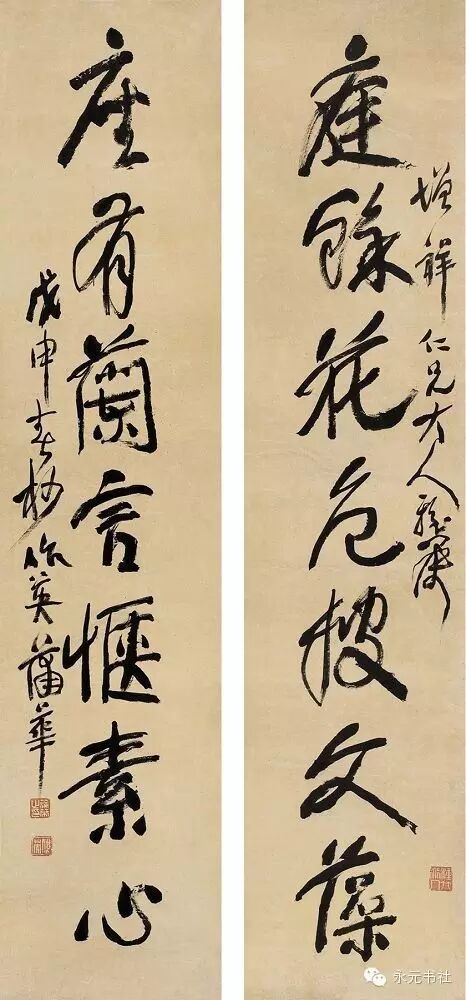 庭餘花色披文藻
增祥仁兄大人雅屬
座有蘭言愜素心
戊申春杪作英蒲華
永元书社